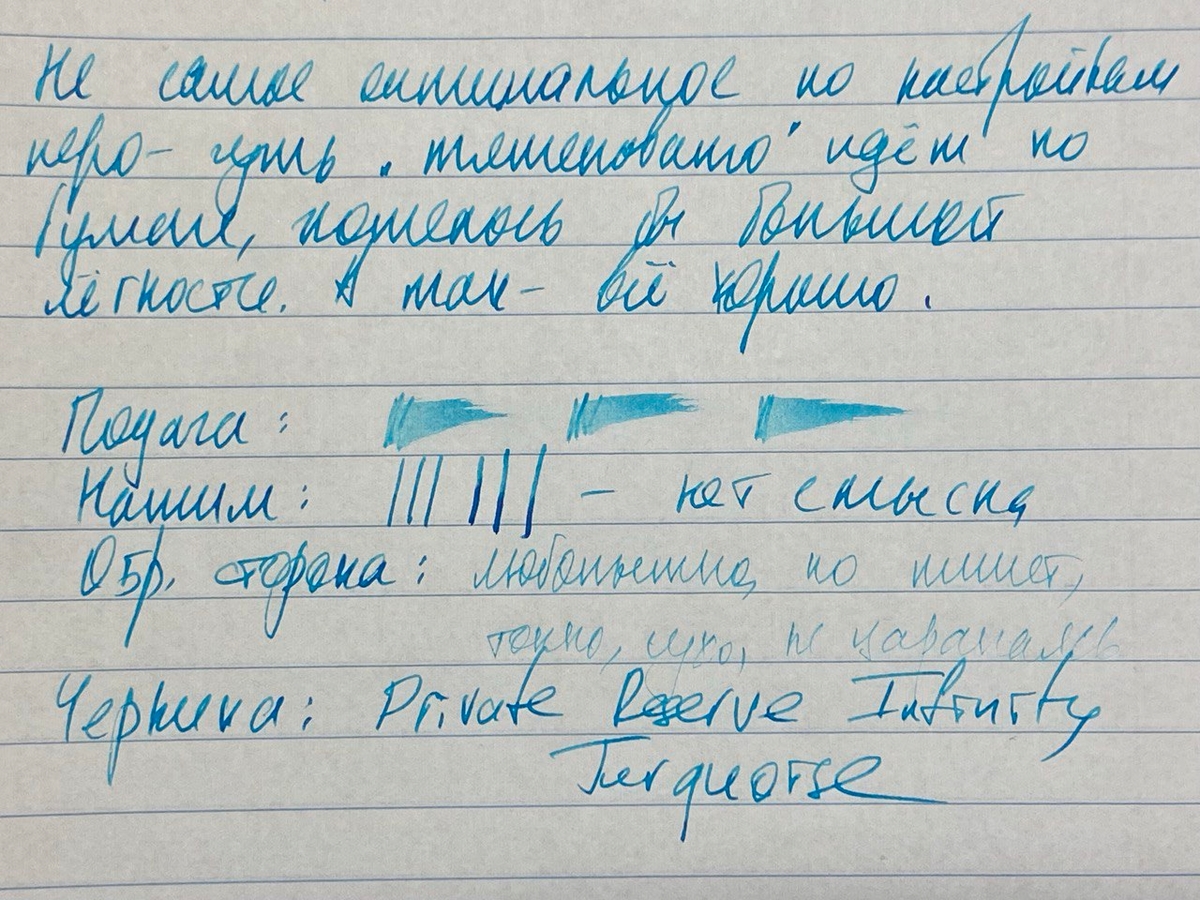 Не самое оптимальное по настройкам
перо - чуть „тяжеловато" идёт по
бумаге, хотелось бы большей
лёгкости. А так - всё хорошо.
Подача:
Нажим: - нет смысла
Обр. сторона: любопытно, но пишет,
тонко, сухо, не царапаясь
Чернила: Private Reserve Infinity
Turquoise